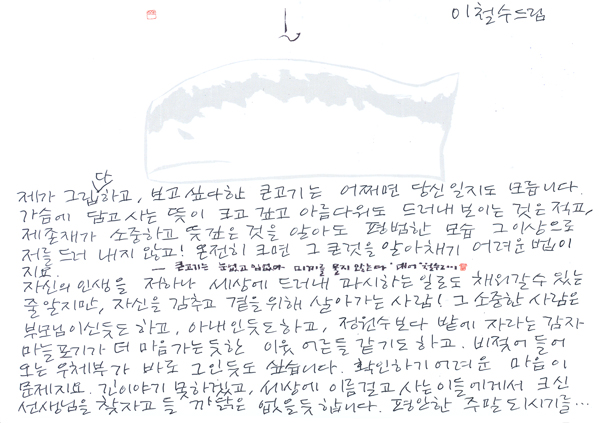 이철수드림
제가 그립단 하고, 보고 싶다한 큰고기는 어쩌면 당신일지도 모릅니다.
가슴에 담고 사는 뜻이 크고 깊고 아름다워도 드러내 보이는 것은 적고,
제존재가 소중하고 뜻 깊은 것을 알아도 평범한 모습 그이상으로
저를 드러 내지 않고! 온전히 크면 그 큰것을 알아채기 어려운 법이
지요. — 큰고기는 미끼를 물지 않는다
자신의 인생을 저하나 세상에 드러내 과시하는 일로도 채워갈 수 있는
줄 알지만, 자신을 감추고 곁을 위해 살아가는 사람! 그 소중한 사람은
부모님이신듯도 하고, 아내인듯도하고, 정원수보다 밭에 자라는 감자
마늘포기가 더 마음가는듯한 이웃 어른들 같기도 하고. 비젖어 들어
오는 우체부가 바로 그인듯도 싶습니다. 확인하기 어려운 마음이
문제지요. 긴이야기 못하겠고, 세상에 이름걸고 사는이들에게서 크신
선생님을 찾자고 들 까닭은 없을듯 합니다. 평안한 주말 되시기를...